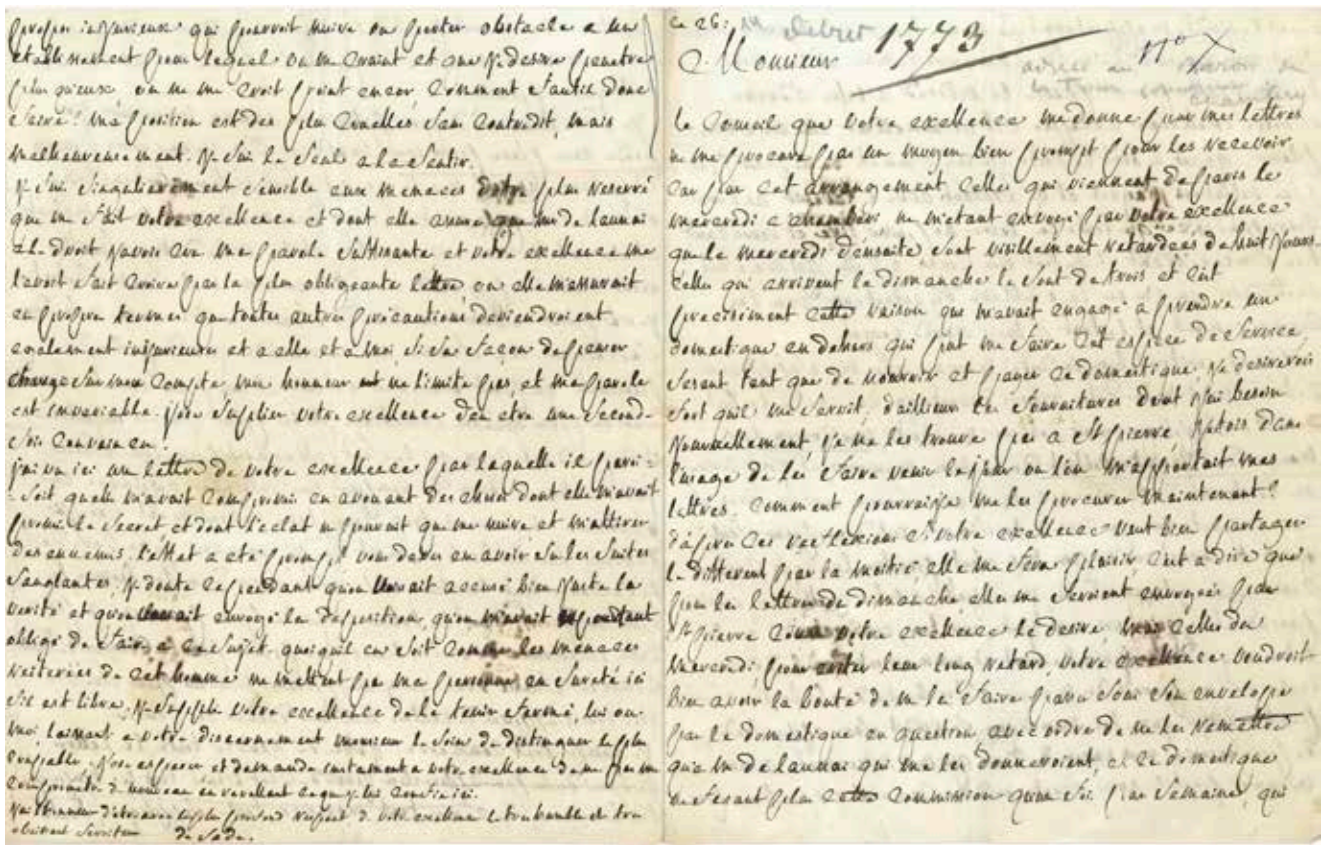 propos injurieux qui pourroit nuire ou porter obstacle a un
etablissement pour lequel on me craint et que je desire peutetre
plus qu'eux on ne me croit point encor comment fautil donc
faire? ma position est des plus cruelles sans contredit, mais
malheureusement je suis le seul a le sentir.
je suis singulierement sensible aux menaces detre plus resserré
que me fait votre excellence et dont elle que mr de launai
a le droit javois cru ma parole suffisante et votre excellence me
l'avoit fait croire par la plus obligeante lettre ou elle m'assuroit
en propre termes que toutes autres précautions deviendroient
egalement injurieuses et a elle et a moi si sa façon de penser
change sur mon compte, mon honneur ne l'imite pas, et ma parole
est invariable. j'ose suplier votre excellence d'en etre une seconde
fois convaincu.
j'ai vu ici une lettre de votre excellence par laquelle il parois-
-soit quelle m'avait compromis en avouant des choses dont elle m'avait
promis le secret et dont l'eclat ne pouvait que me nuire et m'attirer
des ennemis. l'effet a eté prompt vous devez en avoir su les suites
sanglantes. je doute cependant quon accusé bien juste la
verité et quon envoyé la deposition, quon m'avait
obligé de faire a ce sujet. quoiquil en soit comme les menaces
reiterées de cet homme ne mettent pas ma personne en sureté ici
s'il est libre, je suplie votre excellence de le tenir fermé, lui ou
moi, laissant a votre discernement monsieur le soin de distinguer le plus
coupable. j'ose esperer et demande instament a votre excellence de ne pas me
compromettre de nouveau en revellant ce que je lui confie ici.
j'ai l'honneur d'etre avec le plus profond respect de votre excellence le tres humble et tres
obeissant serviteur de sade.
ce 26: 1773 No
Monsieur
le conseil que votre excellence me donne pour mes lettres
ne me procure pas un moyen bien prompt pour les recevoir
car par cet arrangement celles qui viennent de paris le
mercredi a chamberi ne m'etant envoyé par votre excellence
que le mercredi densuite sont visiblement retardées de huit jours.
celles qui arrivent le dimanche le sont de trois et c'est
precisiment cette raison qui m'avait engagé a prendre un
domestique en dehors qui put me faire cet espece de service,
fesant tant que de nourrir et payer ce domestique je desirerois
fort quil me servit. d'ailleurs les fournitures dont j'ai besoin
journellement, je ne les trouve pas a St pierre j'etois dans
l'usage de les faire venir le jour ou l'on m'apportait mes
lettres. comment pourraisje me les procurer maintenant?
d'apres ces reflexions si votre excellence veut bien partager
le different par la moitié, elle me fera plaisir, c'est a dire que
pour les lettres de dimanche, elles me seroient envoyées par
St pierre come votre excellence le desire, mais celles du
mercredi, pour eviter leur long retard, votre excellence voudroit
bien avoir la bonté de me le faire passer sous son envelope
par le domestique en question, avec ordre de ne les remettre
qu'a mr de launai qui me les donneroient, et ce domestique
ne fesant plus cette commission qu'une fois par semaine, qui